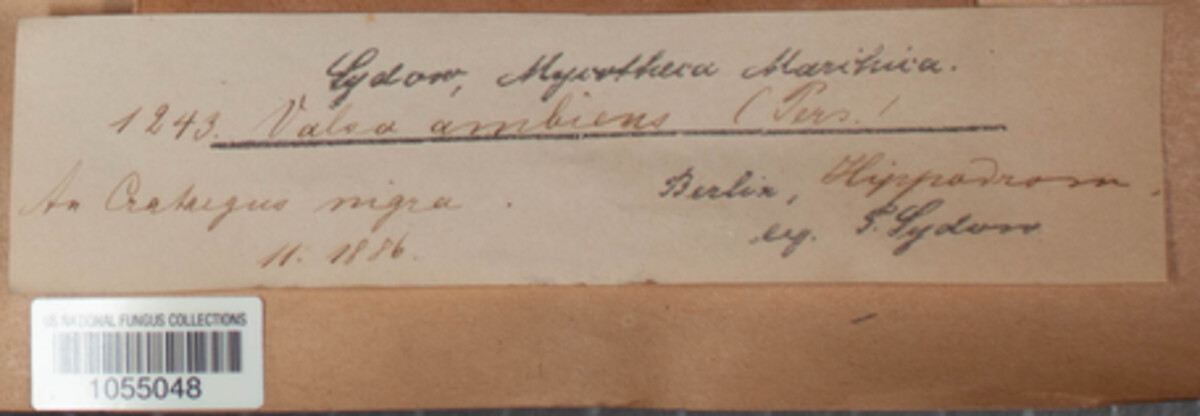 Sydow, Mycotheca Marchica.
1243. Valsa ambiens (Pers.)
An Crataegus nigra.
Berlin, Hippodrom.
11. 1886.
leg. P. Sydow
US NATIONAL FUNGUS COLLECTIONS
1055048